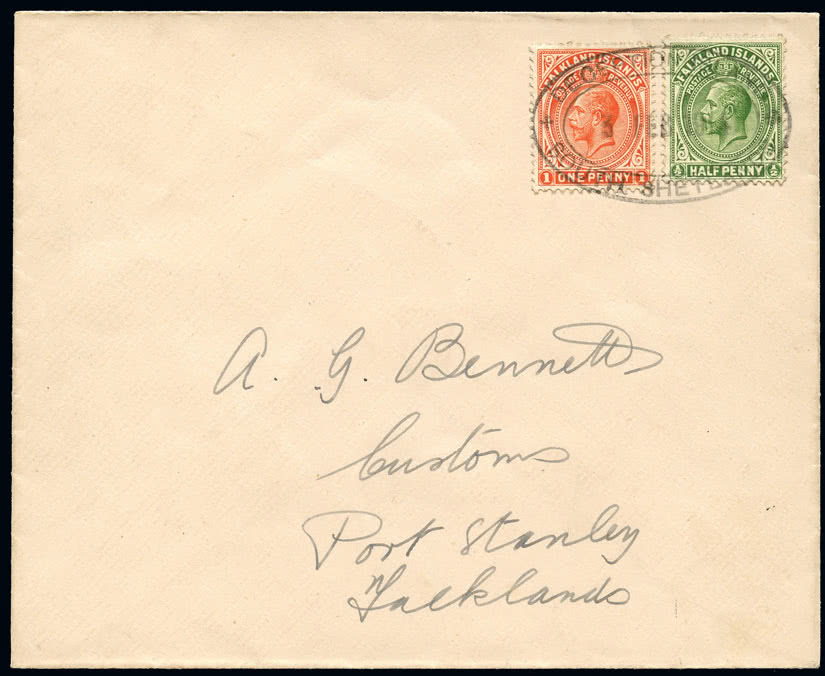 FALKLAND ISLANDS
POSTAGE REVENUE
1 ONE PENNY 1
FALKLAND ISLANDS
POSTAGE & REVENUE
½ HALF PENNY ½
SOUTH SHETL
A. G. Bennett
Customs
Port Stanley
Falklands